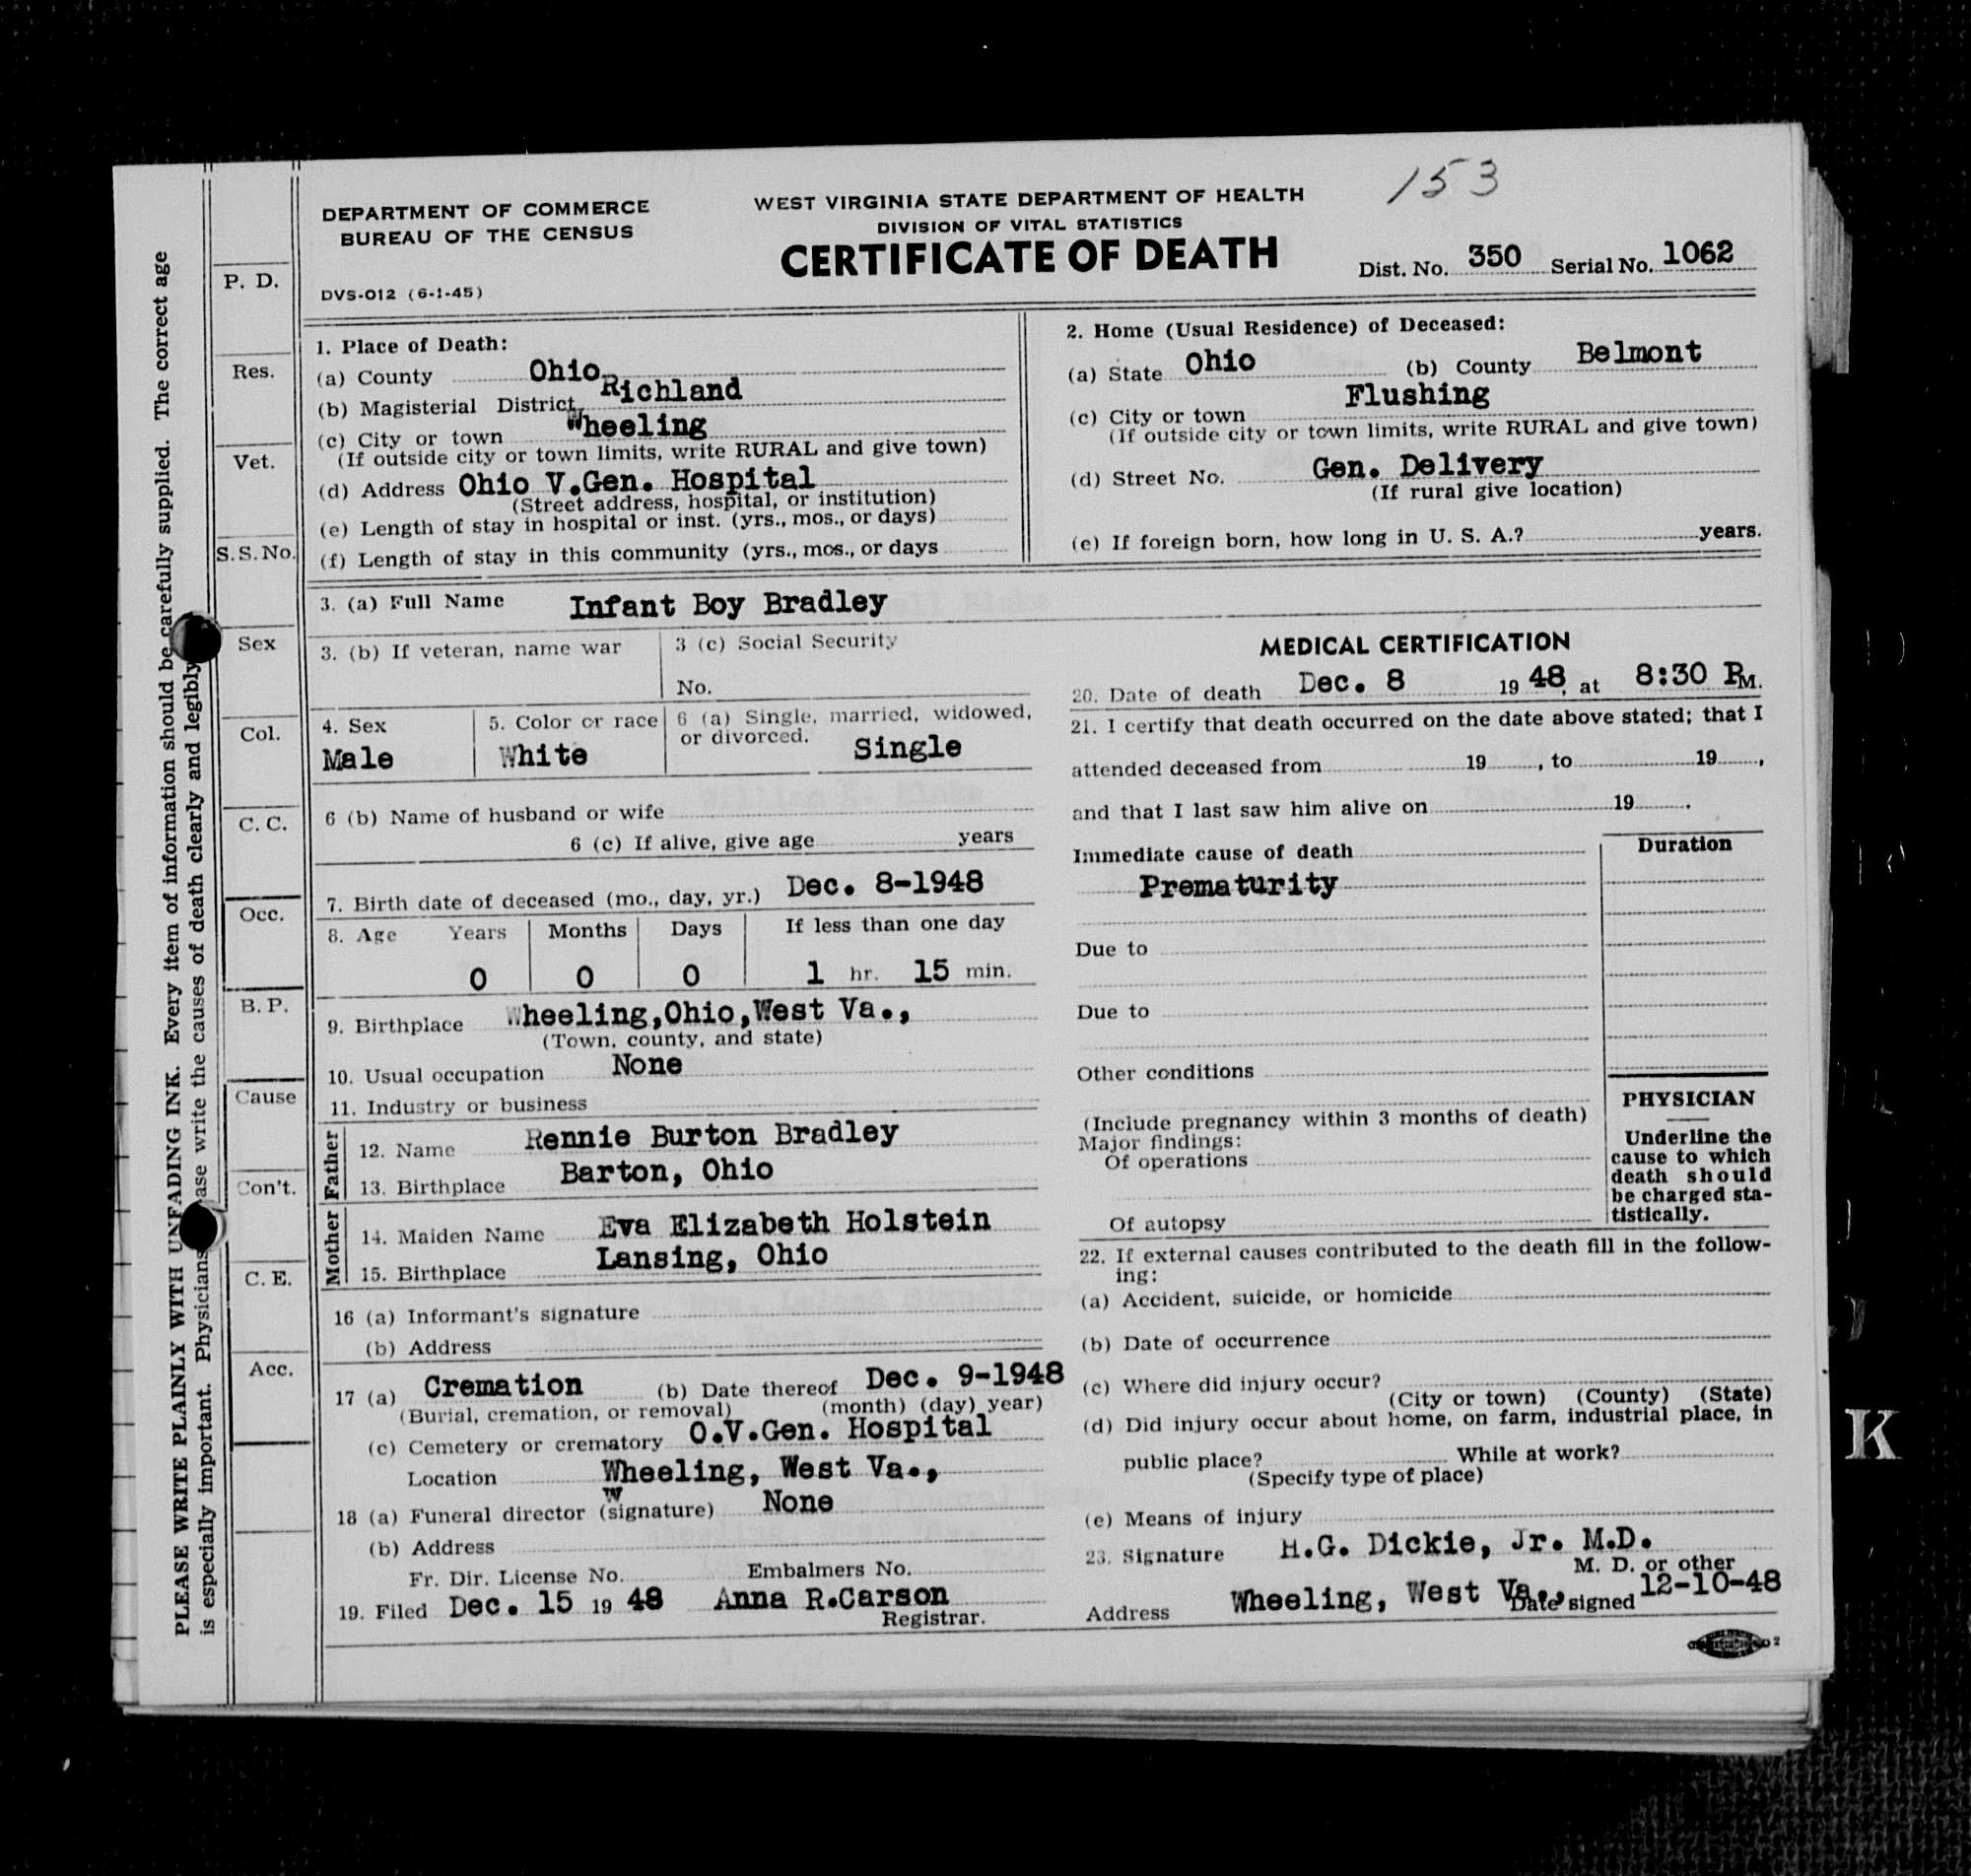 153
DEPARTMENT OF COMMERCE
BUREAU OF THE CENSUS
DVS-012 (6-1-45)
WEST VIRGINIA STATE DEPARTMENT OF HEALTH
DIVISION OF VITAL STATISTICS
CERTIFICATE OF DEATH
Dist. No. 350 Serial No. 1062
PLEASE WRITE PLAINLY WITH UNFADING INK. Every item of information should be carefully supplied. The correct age
is especially important. Physicians ase write the causes of death clearly and legibly
P. D.
Res.
Vet.
S.S.No.
Sex
Col.
C. C.
Occ.
B. P.
Cause
Con't.
C. E.
Acc.
1. Place of Death:
(a) County Ohio
(b) Magisterial District Richland
(c) City or town Wheeling
(If outside city or town limits, write RURAL and give town)
(d) Address Ohio V.Gen. Hospital
(Street address, hospital, or institution)
(e) Length of stay in hospital or inst. (yrs., mos., or days)
(f) Length of stay in this community (yrs., mos., or days
2. Home (Usual Residence) of Deceased:
(a) State Ohio (b) County Belmont
(c) City or town Flushing
(If outside city or town limits, write RURAL and give town)
(d) Street No. Gen. Delivery
(If rural give location)
(e) If foreign born, how long in U. S. A.? years.
3. (a) Full Name Infant Boy Bradley
3. (b) If veteran, name war
3 (c) Social Security
No.
4. Sex
Male
5. Color or race
White
6 (a) Single, married, widowed,
or divorced. Single
6 (b) Name of husband or wife
6 (c) If alive, give age years
7. Birth date of deceased (mo., day, yr.) Dec. 8-1948
8. Age Years Months Days If less than one day
0 0 0 1 hr. 15 min.
9. Birthplace Wheeling,Ohio,West Va.,
(Town, county, and state)
10. Usual occupation None
11. Industry or business
Father
12. Name Rennie Burton Bradley
13. Birthplace Barton, Ohio
Mother
14. Maiden Name Eva Elizabeth Holstein
15. Birthplace Lansing, Ohio
16 (a) Informant's signature
(b) Address
17 (a) Cremation (b) Date thereof Dec. 9-1948
(Burial, cremation, or removal) (month) (day) year)
(c) Cemetery or crematory O.V.Gen. Hospital
Location Wheeling, West Va.,
W
18 (a) Funeral director (signature) None
(b) Address
Fr. Dir. License No. Embalmers No.
19. Filed Dec. 15 19 48 Anna R.Carson
Registrar.
MEDICAL CERTIFICATION
20. Date of death Dec. 8 19 48, at 8:30 P M.
21. I certify that death occurred on the date above stated; that I
attended deceased from 19 , to 19 ,
and that I last saw him alive on 19 .
Immediate cause of death
Duration
Prematurity
Due to
Due to
Other conditions
(Include pregnancy within 3 months of death)
Major findings:
Of operations
Of autopsy
PHYSICIAN
Underline the
cause to which
death should
be charged sta-
tistically.
22. If external causes contributed to the death fill in the follow-
ing:
(a) Accident, suicide, or homicide
(b) Date of occurrence
(c) Where did injury occur?
(City or town) (County) (State)
(d) Did injury occur about home, on farm, industrial place, in
public place? While at work?
(Specify type of place)
(e) Means of injury
23. Signature H.G. Dickie, Jr. M.D.
M. D. or other
Address Wheeling, West Va., Date signed 12-10-48
2
K